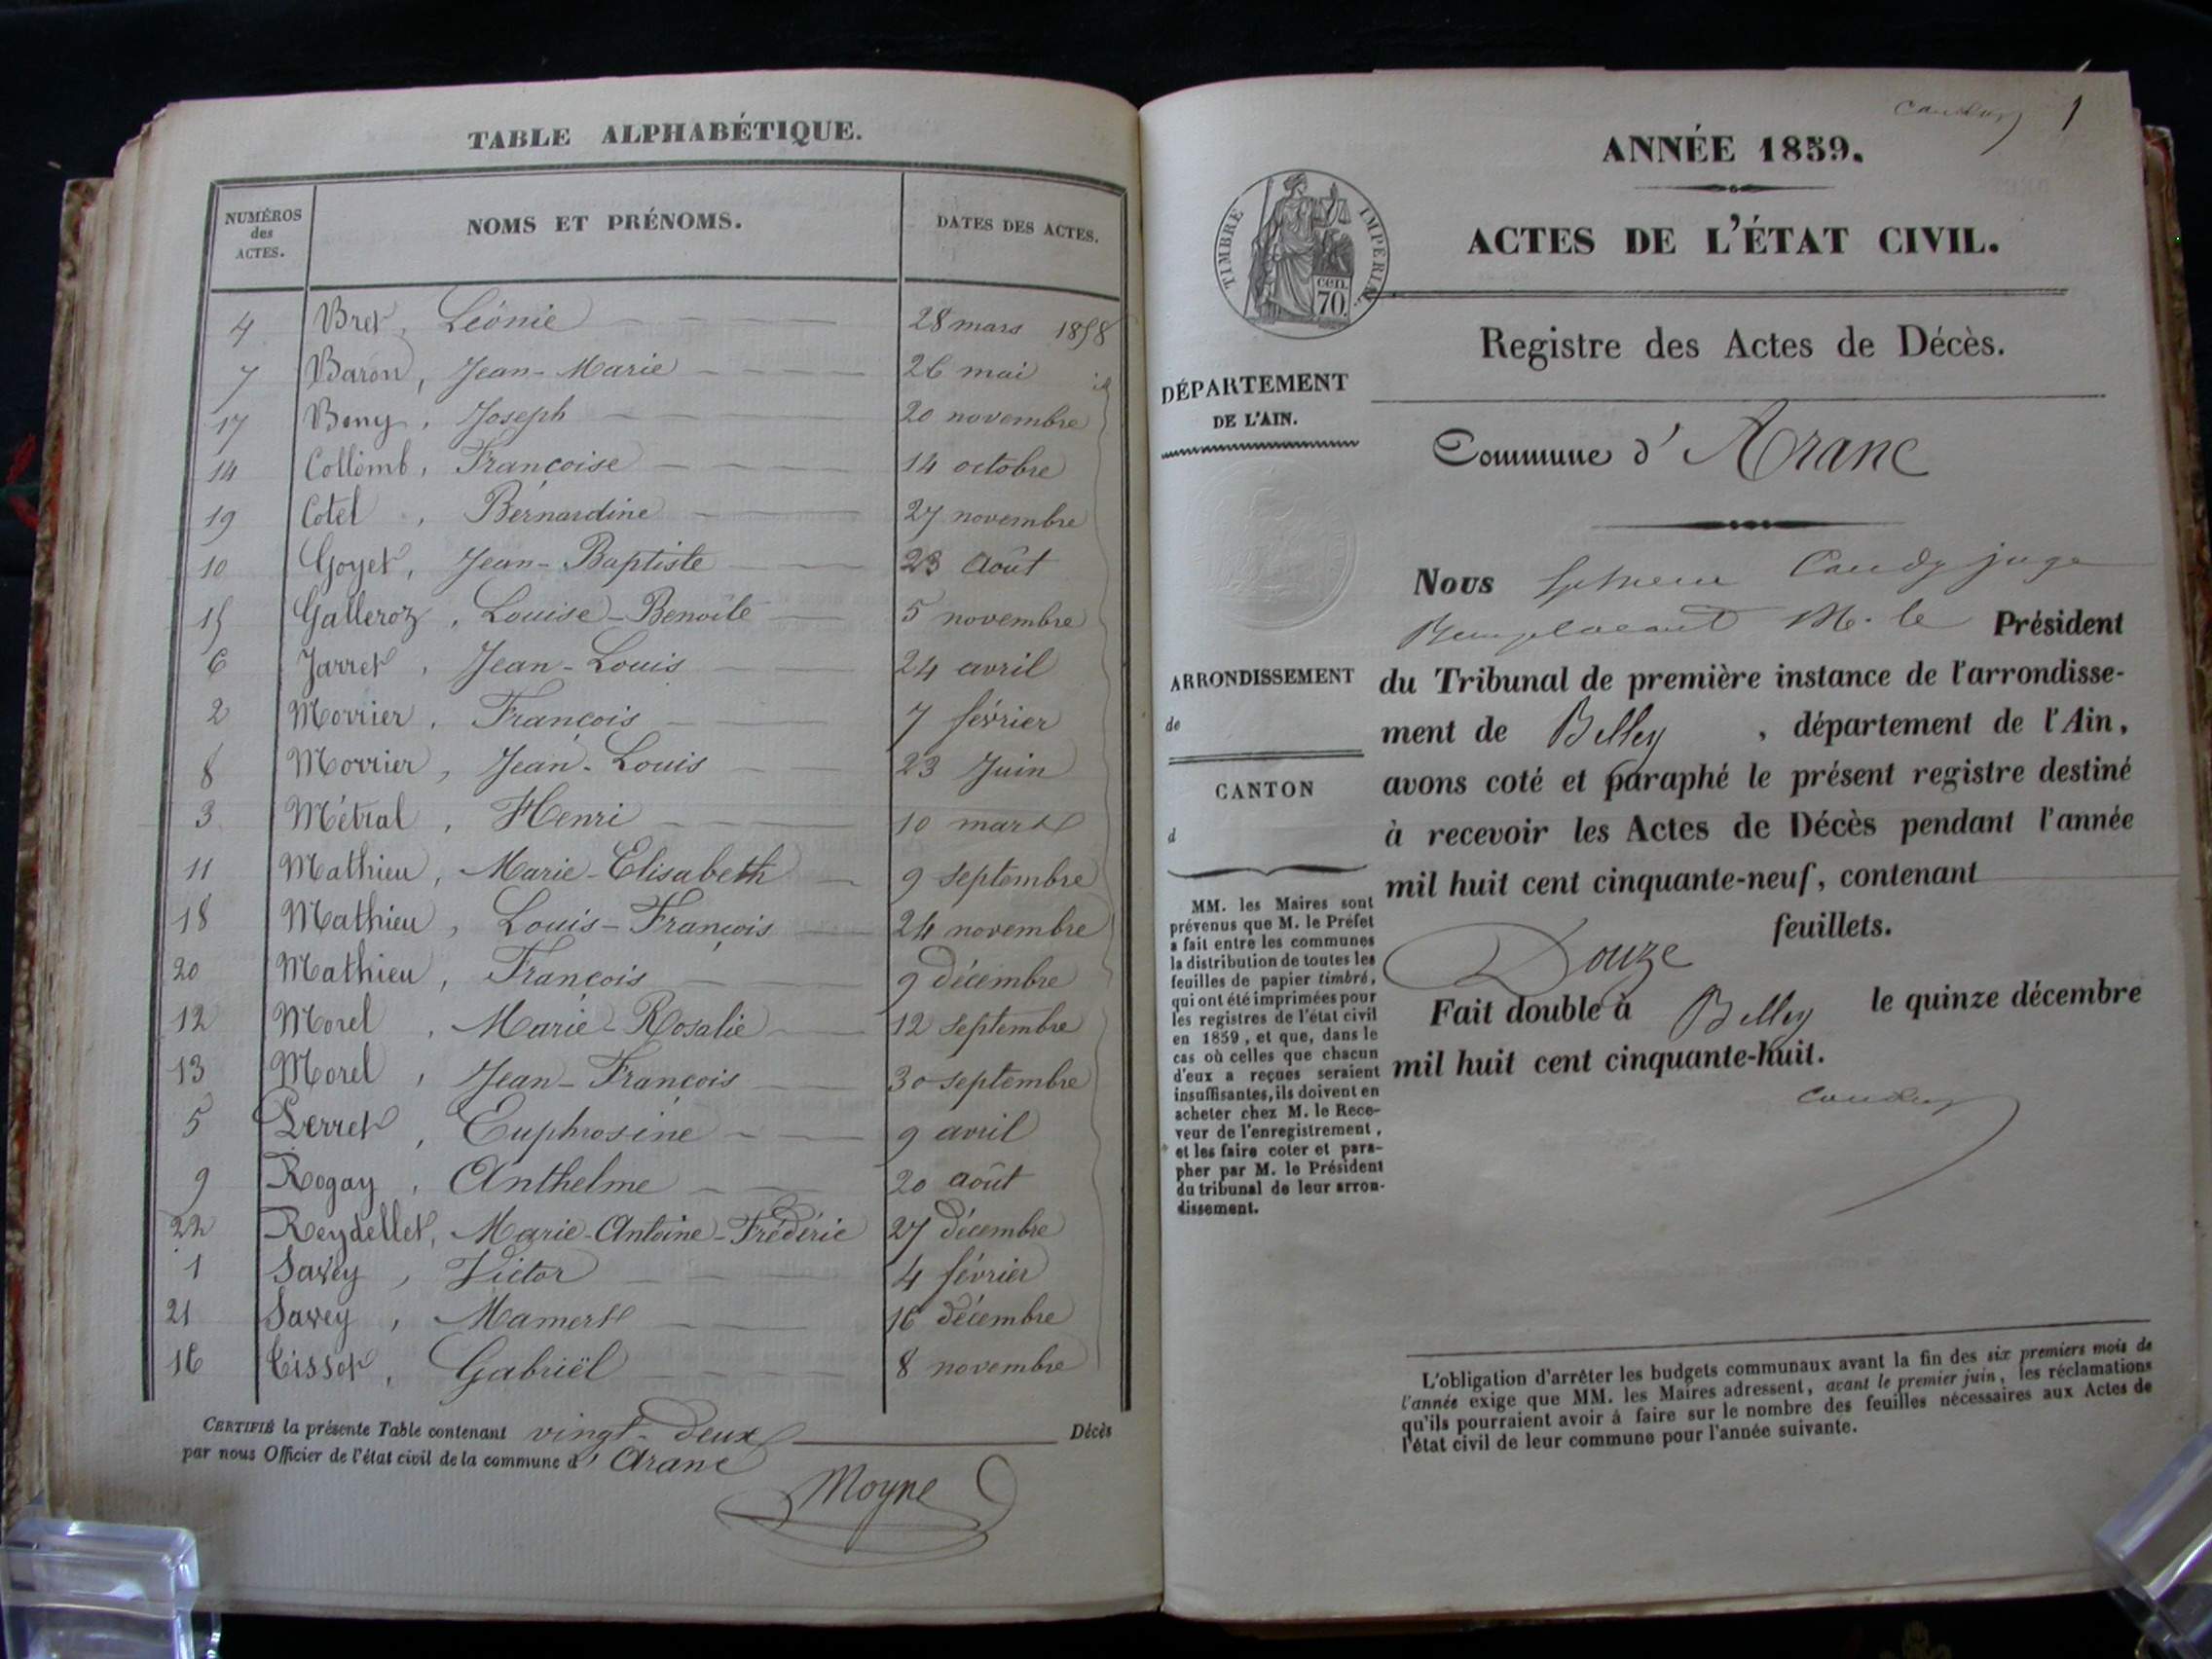 TABLE ALPHABÉTIQUE.
NUMÉROS des ACTES. NOMS ET PRÉNOMS. DATES DES ACTES.
4 Bret, Léonie 28 mars 1858
7 Baron, Jean-Marie 26 mai id
17 Bony, Joseph 20 novembre
14 Collomb, Françoise 14 octobre
19 Cotel, Bernardine 27 novembre
10 Goyet, Jean-Baptiste 23 Août
15 Galleroz, Louise-Benoite 5 novembre
6 Jarret, Jean-Louis 24 avril
2 Morrier, François 7 février
8 Morrier, Jean-Louis 23 Juin
3 Métral, Henri 10 mars
11 Mathieu, Marie-Elisabeth 9 septembre
18 Mathieu, Louis-François 24 novembre
20 Mathieu, François 9 décembre
12 Morel, Marie-Rosalie 12 septembre
13 Morel, Jean-François 30 septembre
5 Perret, Euphrosine 9 avril
9 Rogay, Anthelme 20 août
22 Reydellet, Marie-Antoine-Frédéric 27 décembre
1 Savey, Victor 4 février
21 Savey, Mamert 16 décembre
16 Tissot, Gabriël 8 novembre
CERTIFIÉ la présente Table contenant vingt-deux Décès
par nous Officier de l'état civil de la commune d'Aranc
Moyne
1
ANNÉE 1859.
TIMBRE IMPÉRIAL
cen.
70.
ACTES DE L'ÉTAT CIVIL.
Registre des Actes de Décès.
DÉPARTEMENT
DE L'AIN.
Commune d'Aranc
Nous juge
Remplacant M. le Président
ARRONDISSEMENT
de
du Tribunal de première instance de l'arrondisse-
ment de Belley, département de l'Ain,
CANTON
d
avons coté et paraphé le présent registre destiné
à recevoir les Actes de Décès pendant l'année
mil huit cent cinquante-neuf, contenant
Douze feuillets.
Fait double à Belley le quinze décembre
mil huit cent cinquante-huit.
MM. les Maires sont
prévenus que M. le Préfet
a fait entre les communes
la distribution de toutes les
feuilles de papier timbré,
qui ont été imprimées pour
les registres de l'état civil
en 1859, et que, dans le
cas où celles que chacun
d'eux a reçues seraient
insuffisantes, ils doivent en
acheter chez M. le Rece-
veur de l'enregistrement,
et les faire coter et para-
pher par M. le Président
du tribunal de leur arron-
dissement.
L'obligation d'arrêter les budgets communaux avant la fin des six premiers mois de
l'année exige que MM. les Maires adressent, avant le premier juin, les réclamations
qu'ils pourraient avoir à faire sur le nombre des feuilles nécessaires aux Actes de
l'état civil de leur commune pour l'année suivante.